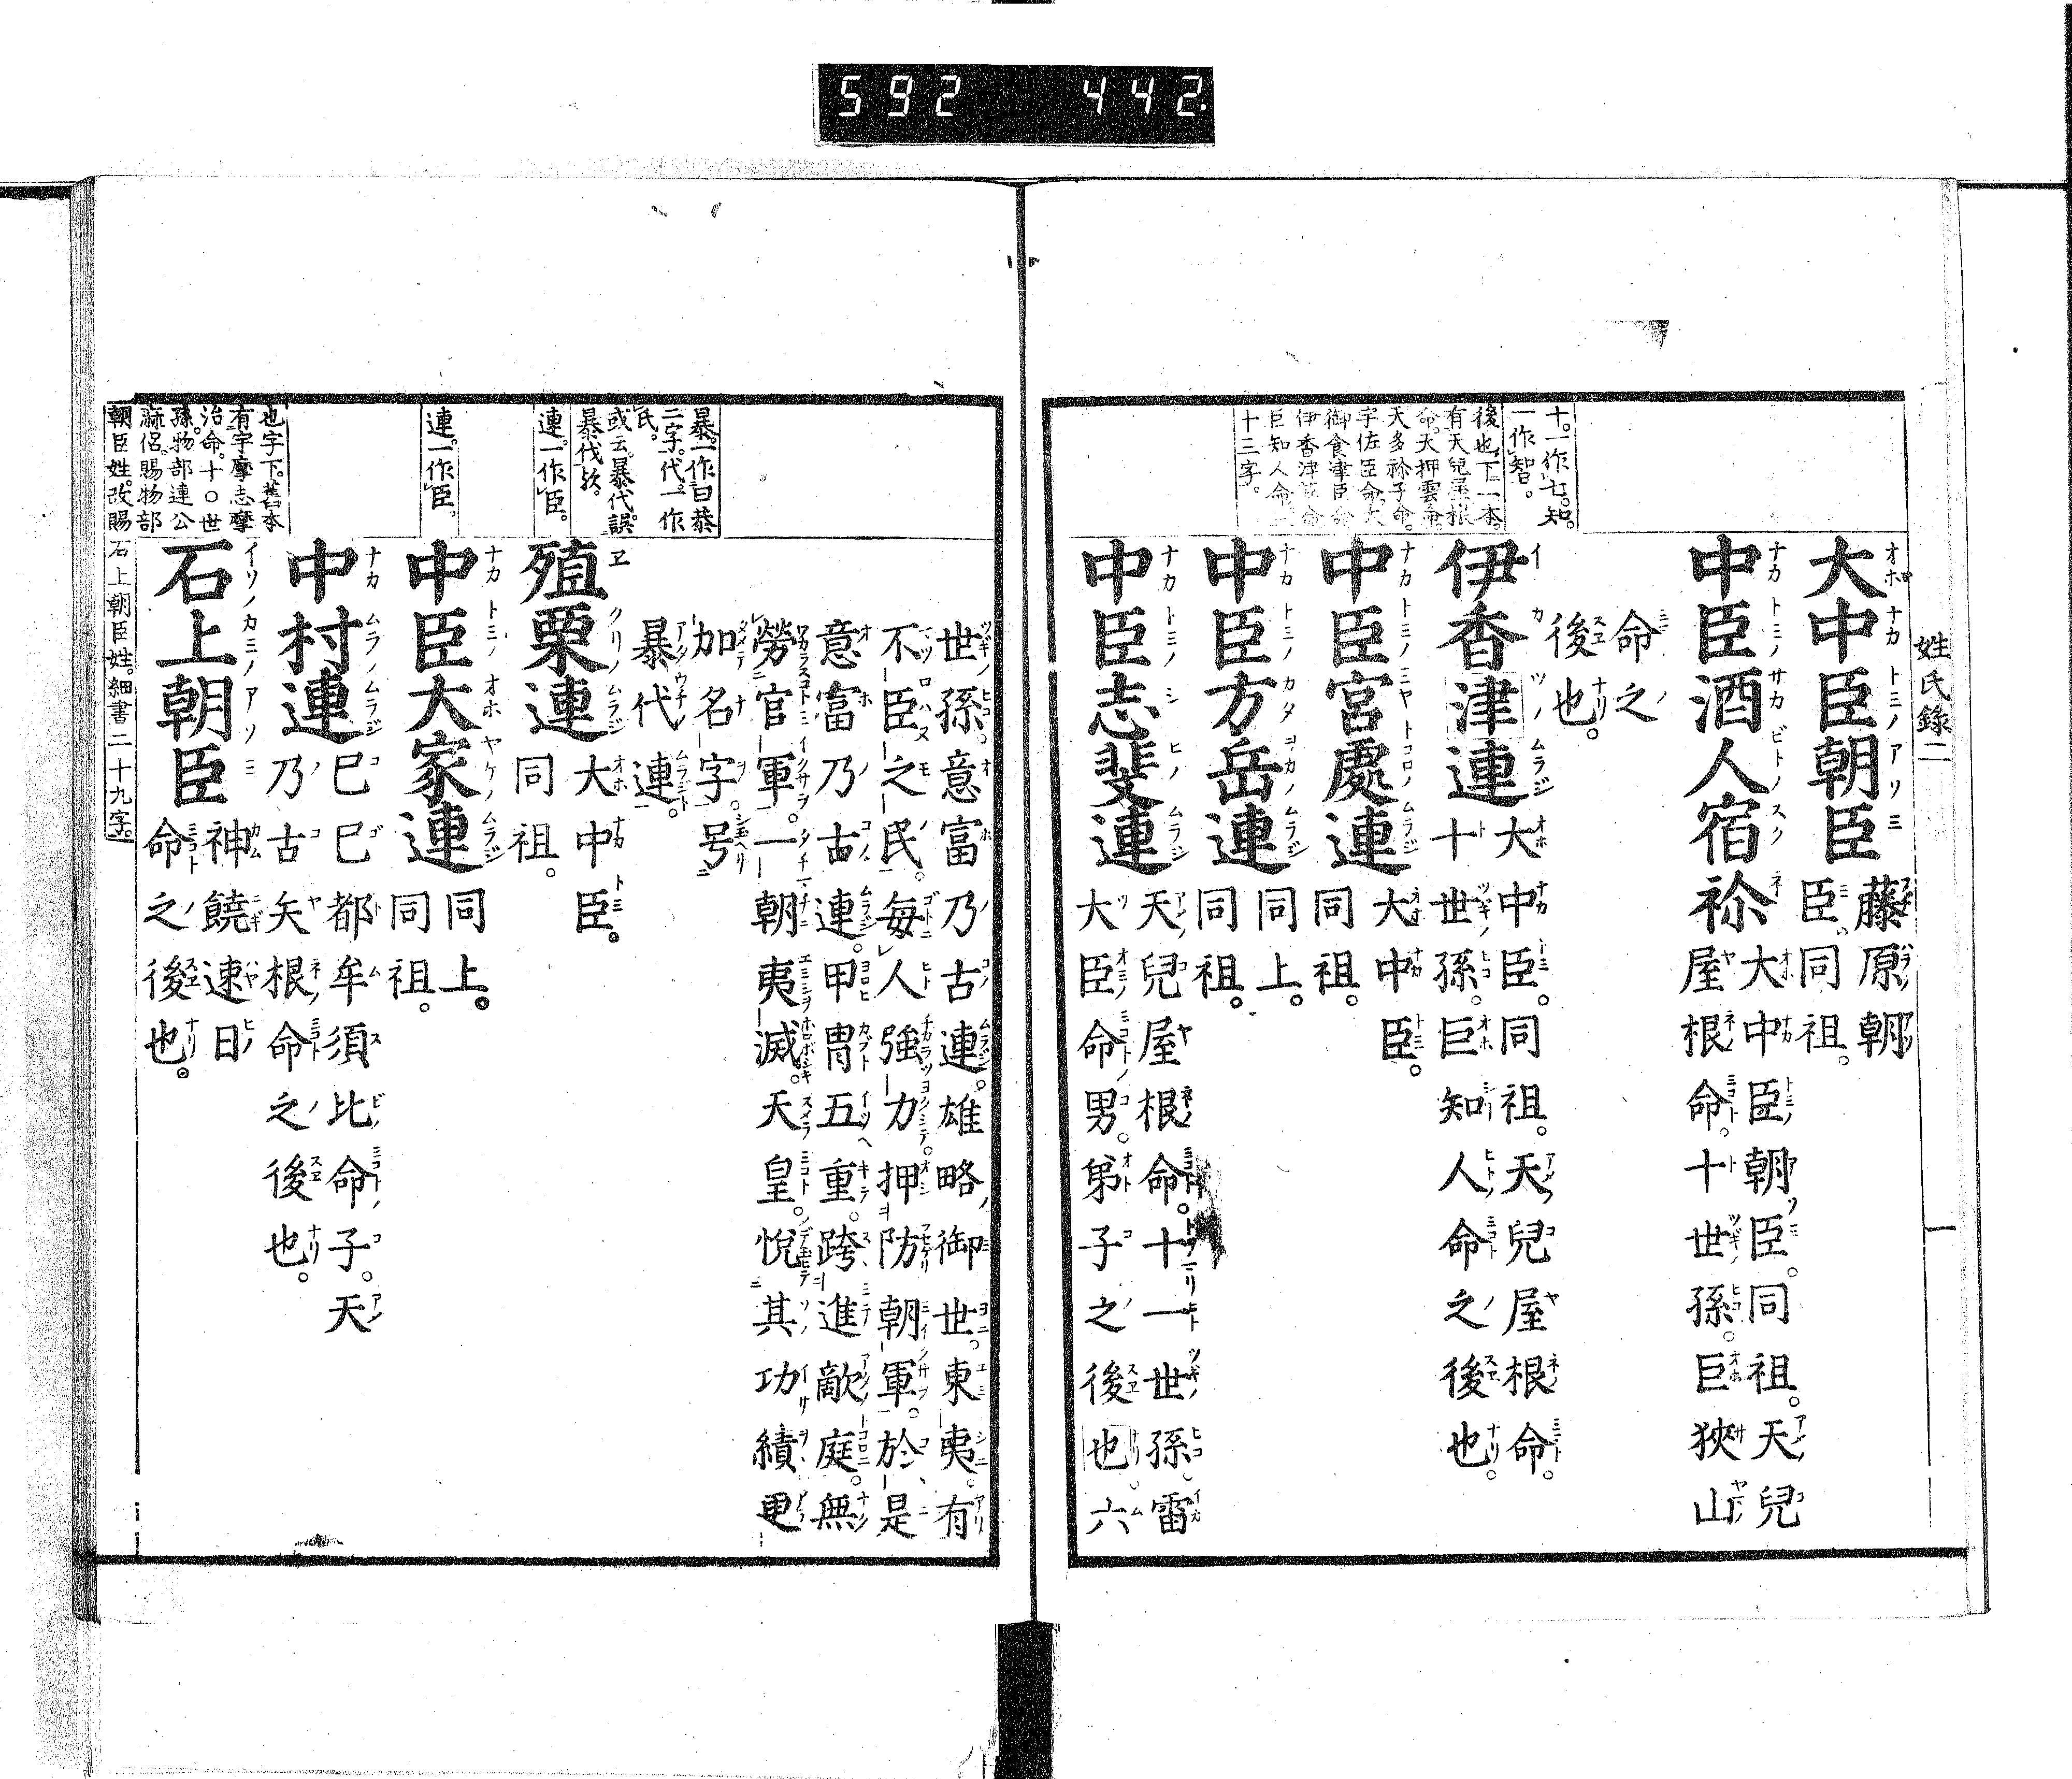 592 442
姓氏錄二 一
大中臣朝臣
藤原朝
臣。同祖。
中臣酒人宿祢
大中臣朝臣。同祖。天兒
屋根命。十世孫。巨狹山
命之
後也。
十。一作七。知。
一作智。
伊香津連
大中臣。同祖。天兒屋根命。
十世孫。巨知人命之後也。
後也下。一本。
有天兒屋根
命。大押雲命。
天多祢子命。
宇佐臣命。大
御食津臣命
伊香津臣命
巨知人命。
十三字。
中臣宮處連
大中臣。
同祖。
中臣方岳連
同上。
同祖。
中臣志斐連
天兒屋根命。十一世孫。雷
大臣命男。弟子之後也。六
世孫。意富乃古連。雄略御世。東夷。有
不臣之民。每人強力押防朝軍。於是
意富乃古連。甲冑五重。跨進敵庭。無
勞官軍。一朝夷滅。天皇。悅其功績更
加名字。号
暴代連。
暴。一作曰恭
二字。代。一作
氏。
或云。暴代誤。
暴代歟。
殖栗連
大中臣。
同祖。
連。一作臣。
中臣大家連
同上。
同祖。
連。一作臣。
中村連
巳巳都牟須比命子。天
乃古矢根命之後也。
石上朝臣
神饒速日
命之後也。
也字下。舊本
有宇摩志摩
治命。十〇世
孫。物部連公
麻侶。賜物部
朝臣姓。改賜
石上朝臣姓。細書二十九字。